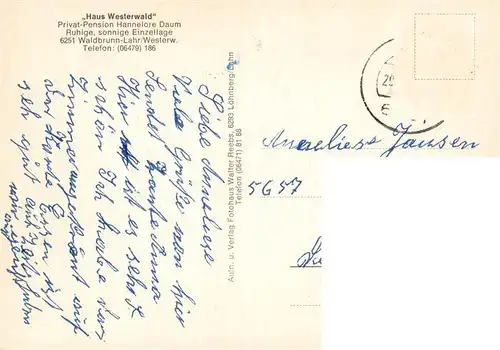 „Haus Westerwald"
Privat-Pension Hannelore Daum
Ruhige, sonnige Einzellage
6251 Waldbrunn-Lahr/Westerw.
Telefon: (06479) 186
Liebe Anneliese
Viele Grüße von hier
sendet Tante Anna
Hier ist es sehr
schön Ich habe das
Zimmer
der Karte Essen ist
sehr gut auch
wir
Aufn. u. Verlag Fotohaus Walter Reebs, 6293 Löhnberg/Lahn
Telefon (06471) 81 86
Anneliese Jansen
5657